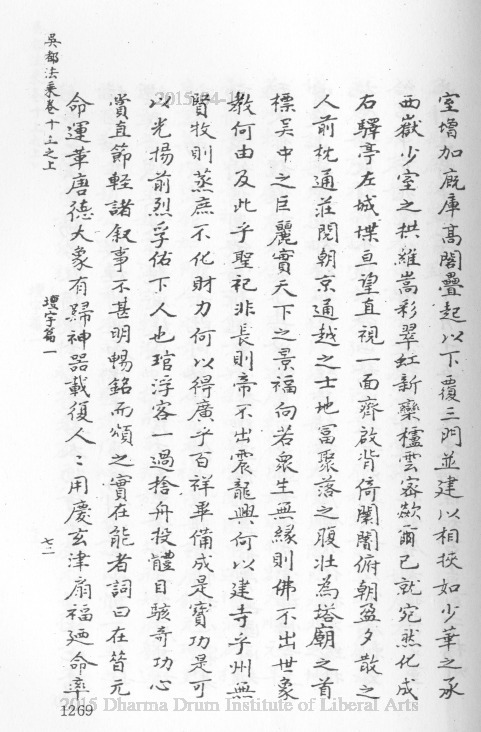 室增加廐庫高閣疊起以下覆三門並建以相挾如少華之承
西嶽少室之拱維嵩彩翠虹新欒櫨雲密歘爾已就宛然化成
右驛亭左城堞亘望直視一面齊啟背倚闤闠俯朝盈夕散之
人前枕通莊閱朝京通越之士地冨聚落之腹壯為塔廟之首
標吴中之巨麗實天下之景福向若衆生無緣則佛不出世象
教何由及此乎聖祀非長則帝不出震龍興何以建寺乎州無
賢牧則蒸庶不化財力何以得廣乎百祥畢備成是寳功是可
以光揚前烈孚佑下人也琯浮客一過捨舟投體目駭奇功心
賞直節輕諸叙事不甚明暢銘而頌之實在能者詞曰在昔元
命運革唐德大象有歸神器載復人〻用慶玄津扇福廼命率
吳都法乗卷十三之上
壇宇篇一
七二
1269
2015-04-1
2015 Dharma Drum Institute of Liberal Arts